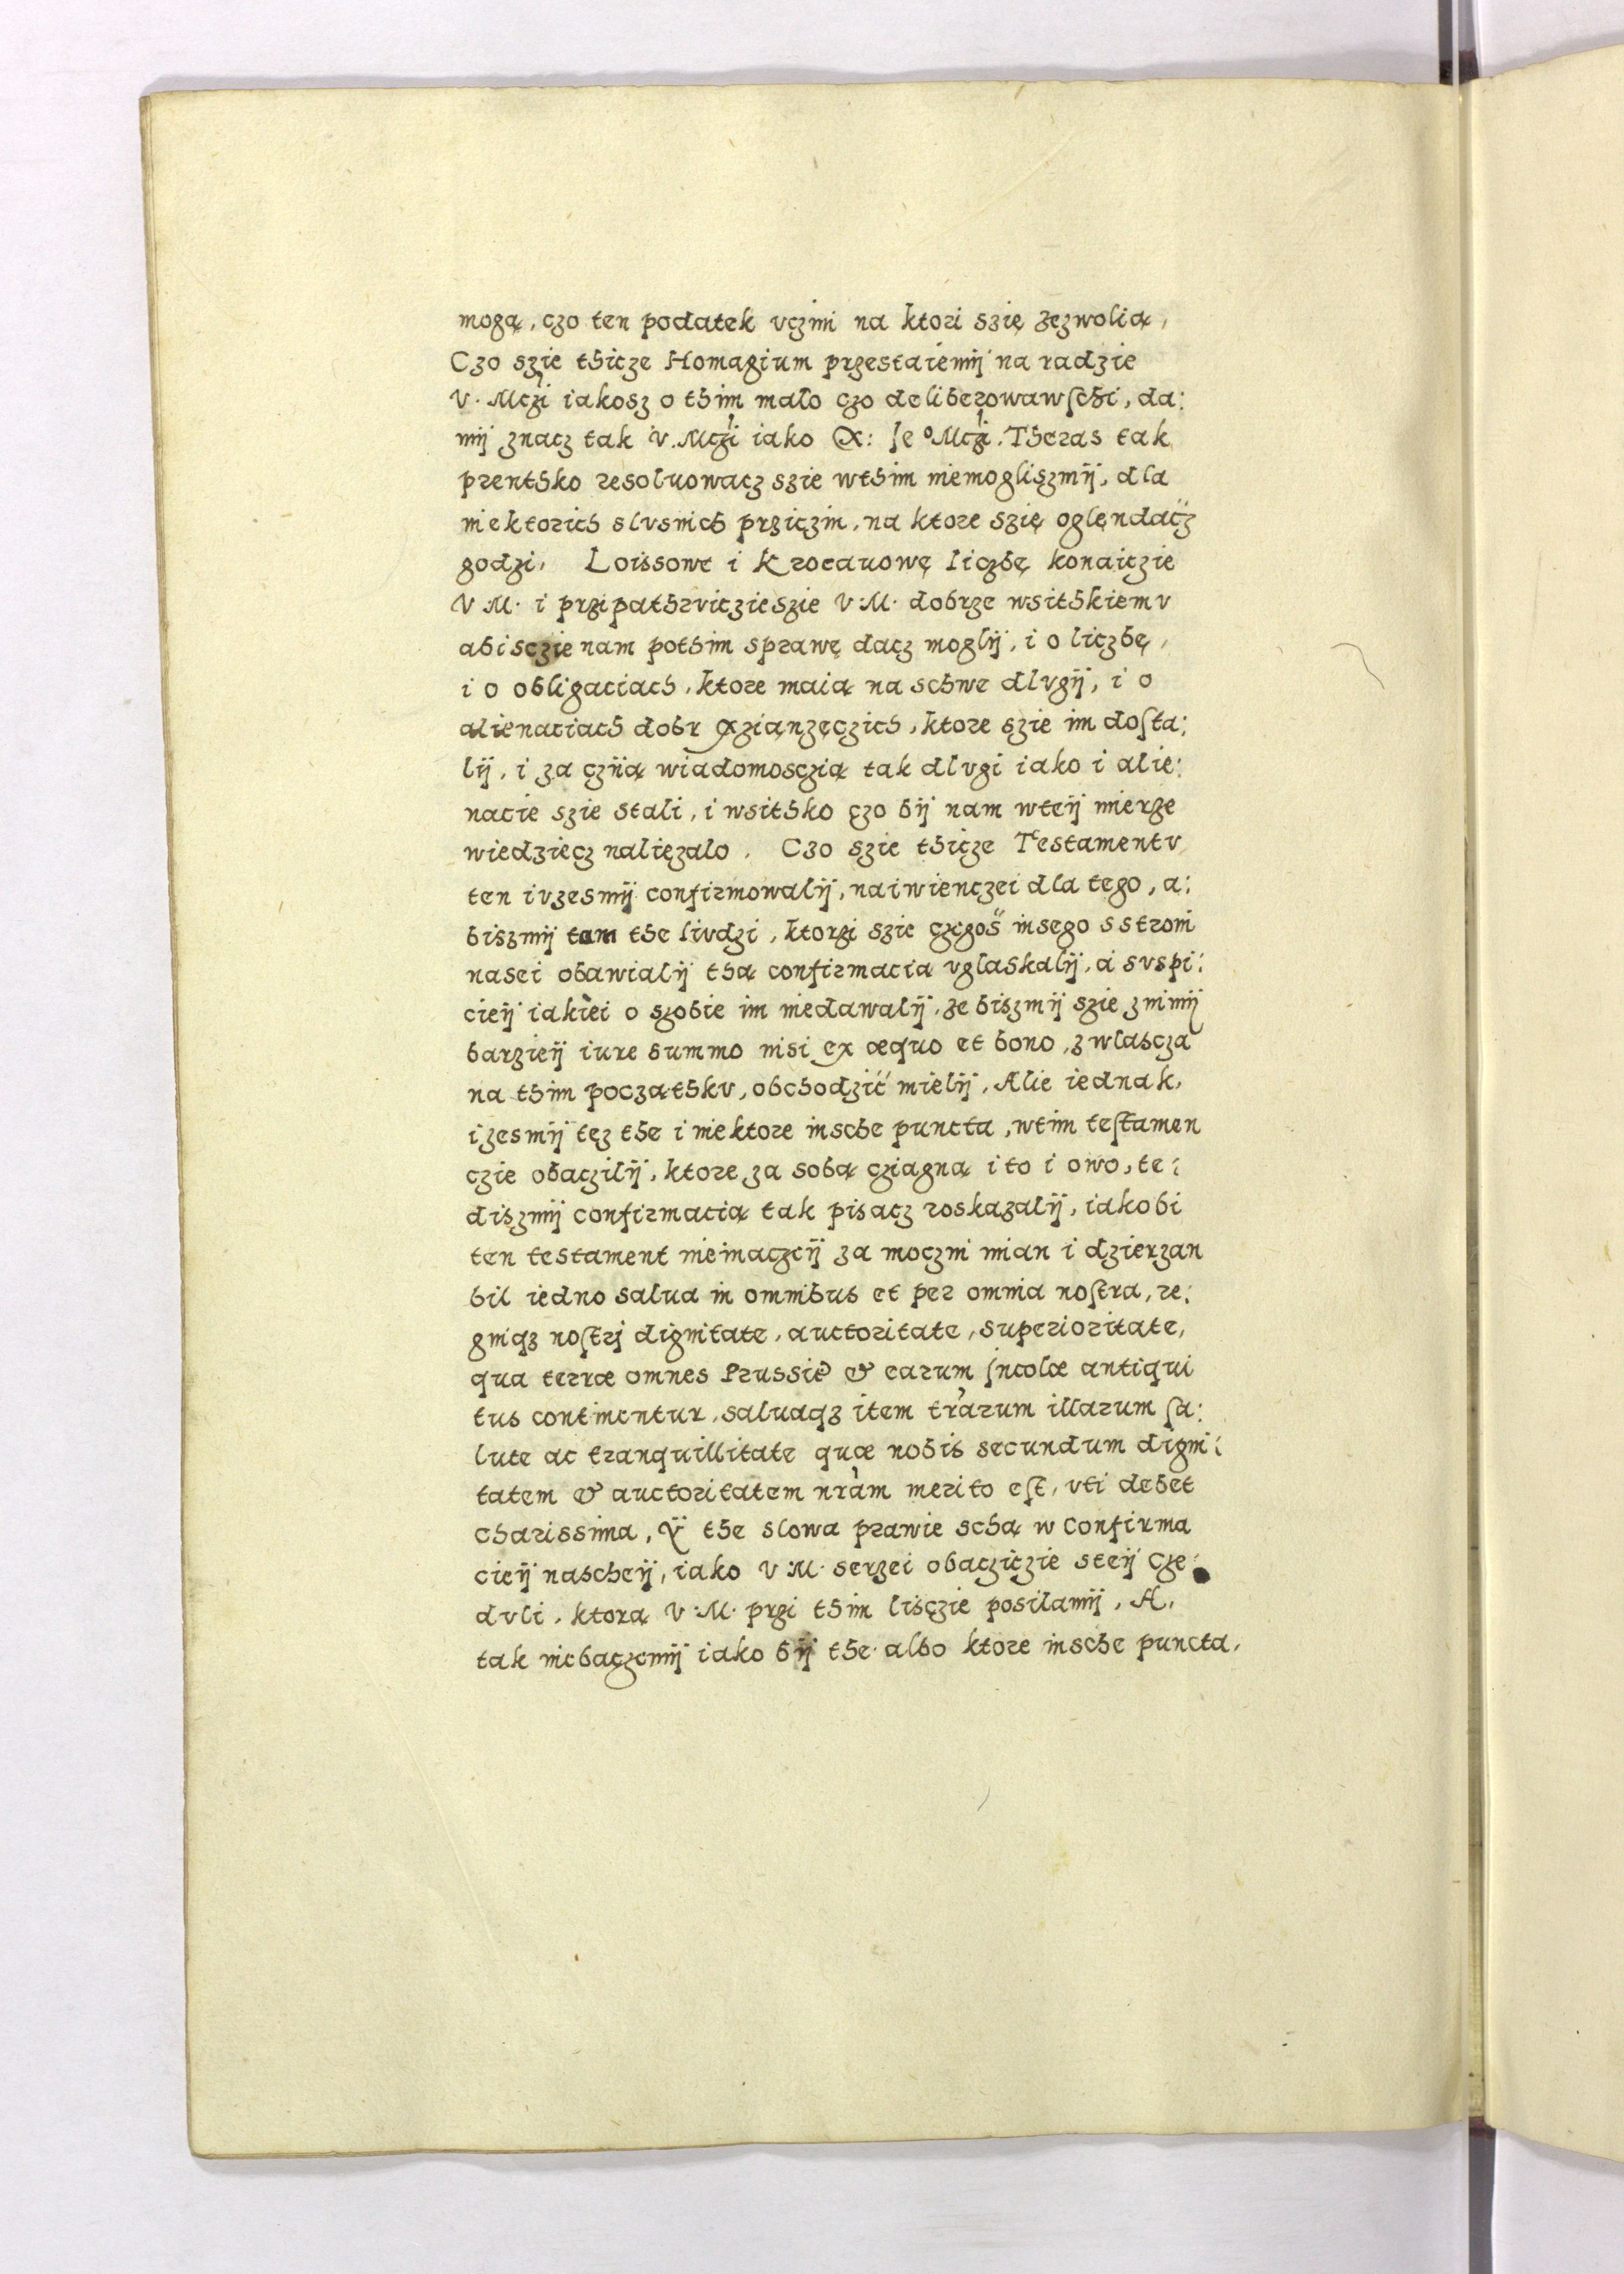 mogą, czo ten podatek vczini na ktori szię zezwolią,
Czo szie thicze Homagium przestaiemij na radzie
V. Mczi iakosz o thim mało czo deliberowawſchi, da:
mij znacz tak V. Mczi iako X: Je⁰ Mczi. Theras tak
prenthko resoluowacz szie wthim niemogliszmij, dla
niektorich slusnich prziczin, na ktore szię oglęndacz
godzi, Loissowe i Krocauowę liczbę konaiczie
V M. i przipathrviczie szie V. M. dobrze wsithkiemv
abisczie nam pothim sprawę dacz moglij, i o liczbę,
i o obligaciach, ktore maią na schwe dlvgij, i o
alienaciach dobr xziąnzęczich, ktore szie im doſta:
lij, i za czÿą wiadomosczią tak dlvgi iako i alie:
nacie szie stali, i wsithko czo bij nam wteij mierze
wiedziecz naliezalo. Czo szie thicze Testamentv
ten ivzesmij confirmowalij, naiwienczei dla tego, a:
biszmij tam the livdzi, ktorzi szie czegoś insego s stroni
nasei obawialij thą confirmacią vglaskalij, a suspi:
cieij iakiei o szobie im niedawalij, ze biszmij szie znimij
barzieij iure summo nisi ex æquo et bono, zwlascza
na thim począthkv, obchodzić mielij, Alie iednak,
izesmij tęz the i niektore insche puncta, wtim teſtamen
czie obaczilij, ktore za sobą cziagną i to i owo, te:
diszmij confirmacią tak pisacz roskazalij, iakobi
ten testament nieinaczeij za moczni mian i dzierzan
bil iedno salua in omnibus et per omnia noſtra, re:
gniqз noſtrj dignitate, auctoritate, superioritate,
qua terræ omnes Prussię & earum Incolæ antiqui
tus continentur, saluaqз item trarum illarum ſa:
lute ac tranquillitate quæ nobis secundum digni:
tatem & auctoritatem nram merito eſt, vti debet
charissima, Ÿ the slowa prawie schą w confirma
cieij nascheij, iako V. M. serzei obacziczie steij cze
dvli, ktorą V. M. przi thim lisczie posilamij, A,
tak niebaczemij iako bij the albo ktore insche puncta,